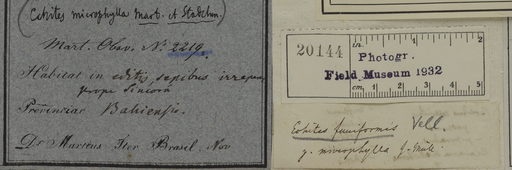 (Echites microphylla Mart. et Stadelm.)
Mart. Obsv. No. 2219.
Habitat in editis sepibus
prope Sincorá
Provinciae Bahiensis.
Dr Martius Iter Brasil. Nov
in. 1 2
20144
Photogr.
Field Museum 1932
cm. 1 2 3 4 5
Echites funiformis Vell.
γ. microphylla J. Müll.